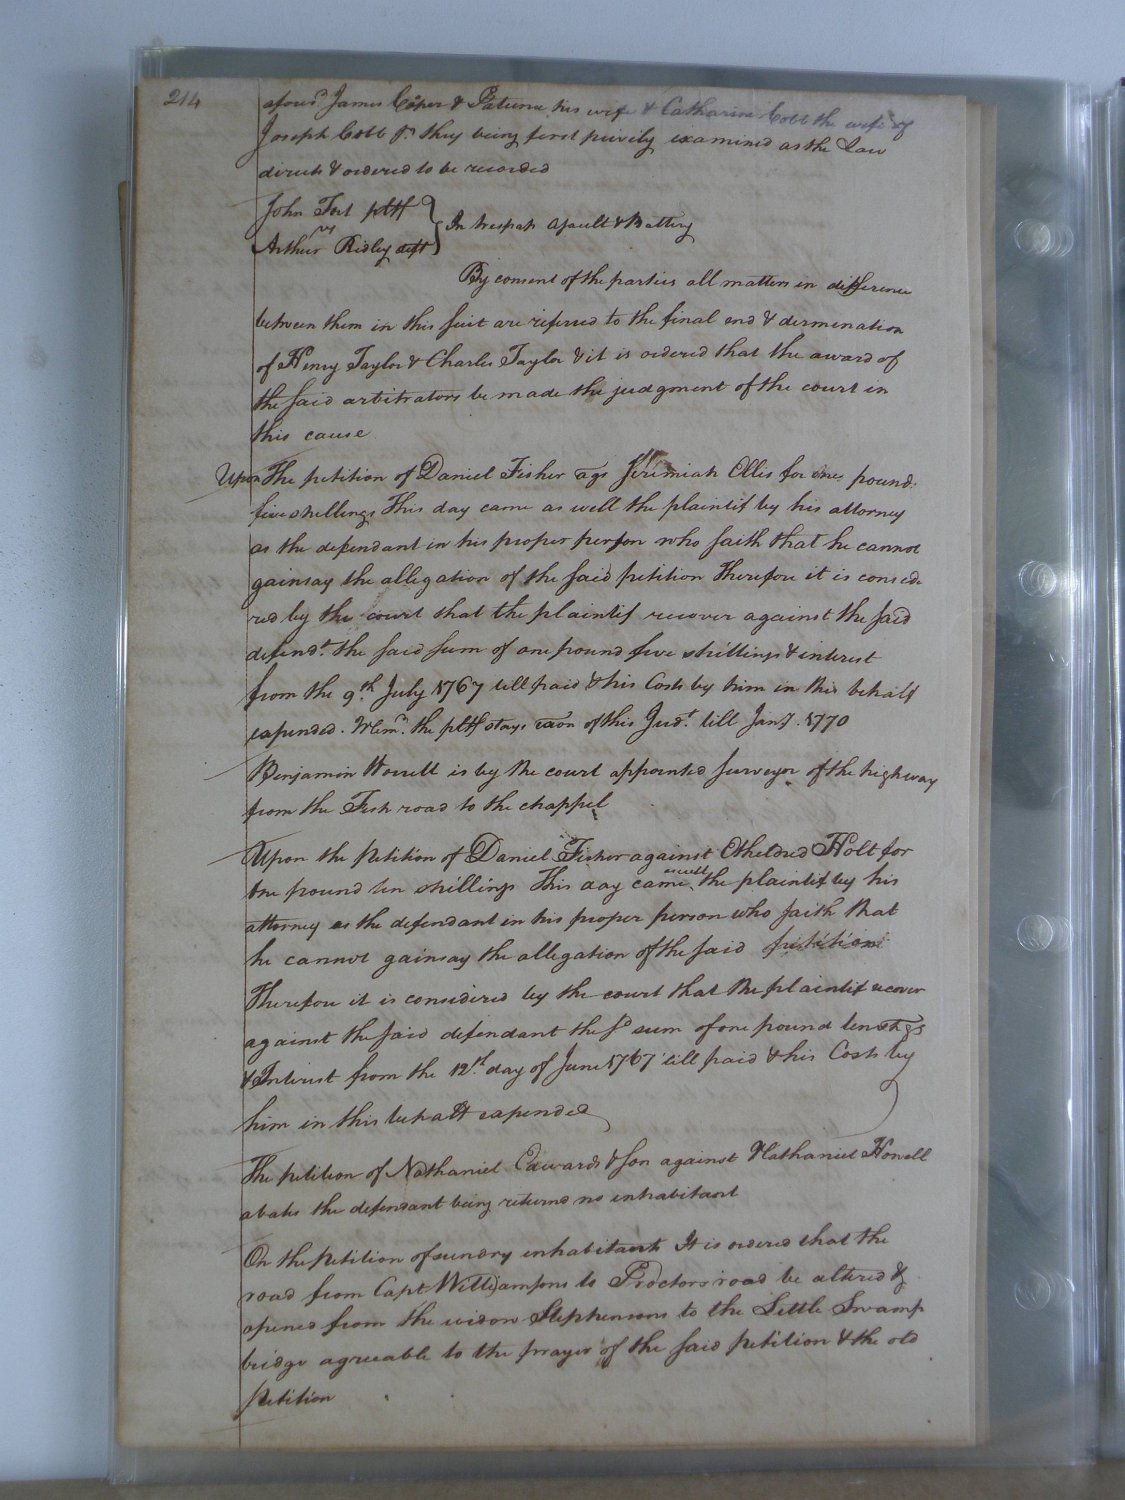 214
afores.d James Cooper & Patience his wife & Catharine Cobb the wife of
Joseph Cobb Jr. they being first privily examined as the Law
directs & ordered to be recorded
John Fort pltff
vs
Arthur Ridley deft
In trespass assault & Battery
By consent of the parties all matters in difference
between them in this suit are referred to the final end & dermenation
of Henry Taylor & Charles Taylor & it is ordered that the award of
the said arbitrators be made the judgment of the court in
this cause
Upon The petition of Daniel Fisher ags Jerimiah Ellis for one pound
five shillings This day came as well the plaintif by his attorney
as the defendant in his proper person who saith that he cannot
gainsay the allegation of the said petition Therefore it is conside
red by the court that the plaintif recover against the said
defend.t the said sum of one pound five shillings & interest
from the 9.th July 1767 till paid & his Costs by him in this behalf
expended. Mem.o the pltff stays exon of this Jud.t till Jany. 1770
Benjamin Worrell is by the court appointed surveyor of the highway
from the Fish road to the chappel
Upon the Petition of Daniel Fisher against Etheldred Holt for
One pound ten shillings This day came as well the plaintif by his
attorney as the defendant in his proper person who saith that
he cannot gainsay the allegation of the said petition
Therefore it is considered by the court that the plaintif recover
against the said defendant the s.d sum of one pound ten shgs
& Interest from the 12.th day of June 1767 till paid & his Costs by
him in this behalf expended
The petition of Nathaniel Edwards & son against Nathaniel Howell
abates the defendant being returnd no inhabitant
On the petition of sundry inhabitants It is ordered that the
road from Capt Williamsons to Proctors road be altered &
opened from the widow Stephensons to the Little Swamp
bridge agreeable to the prayer of the said petition & the old
petition